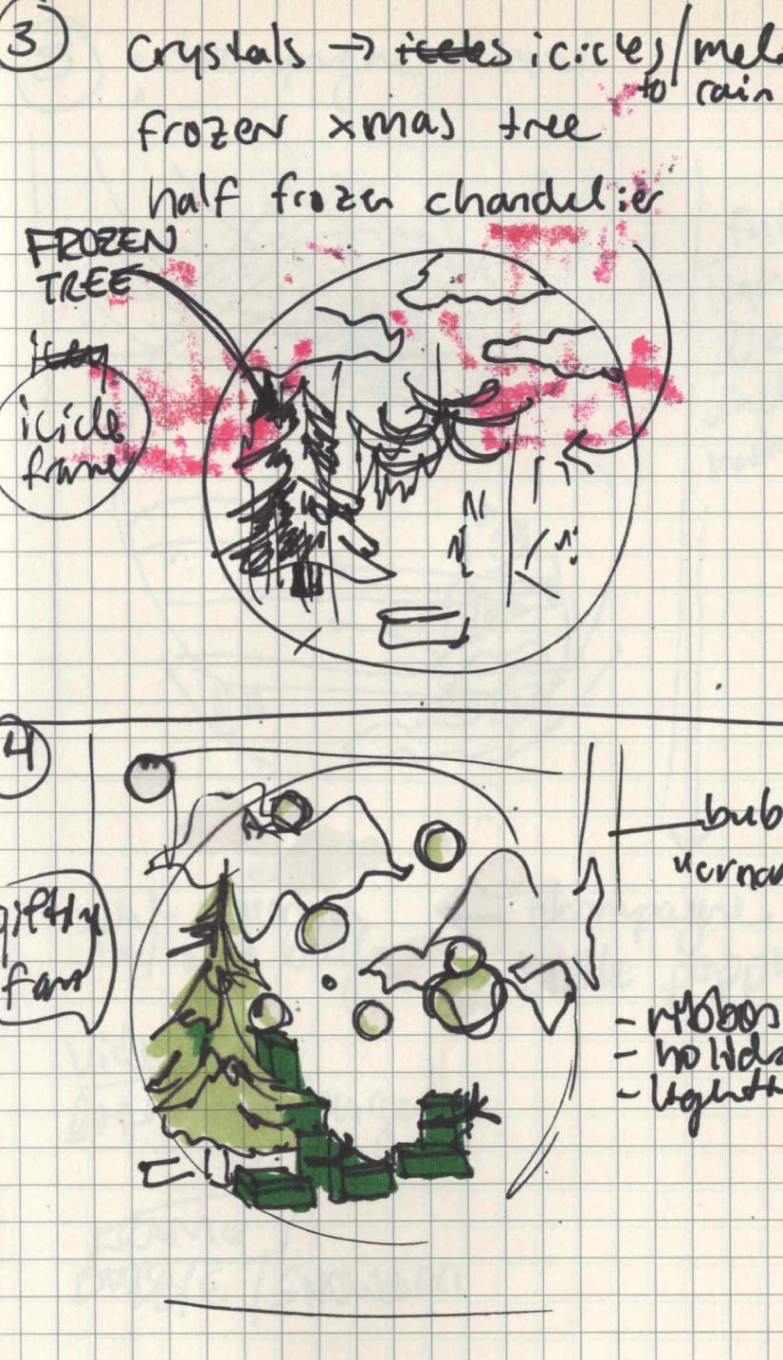 3
Crystals → icicles icicles/mel
to rain
frozen xmas tree
half frozen chandelier
FROZEN
TREE
icey
icicle
frame
4
bub
giftly
fam
- ribbos
- holida
- light